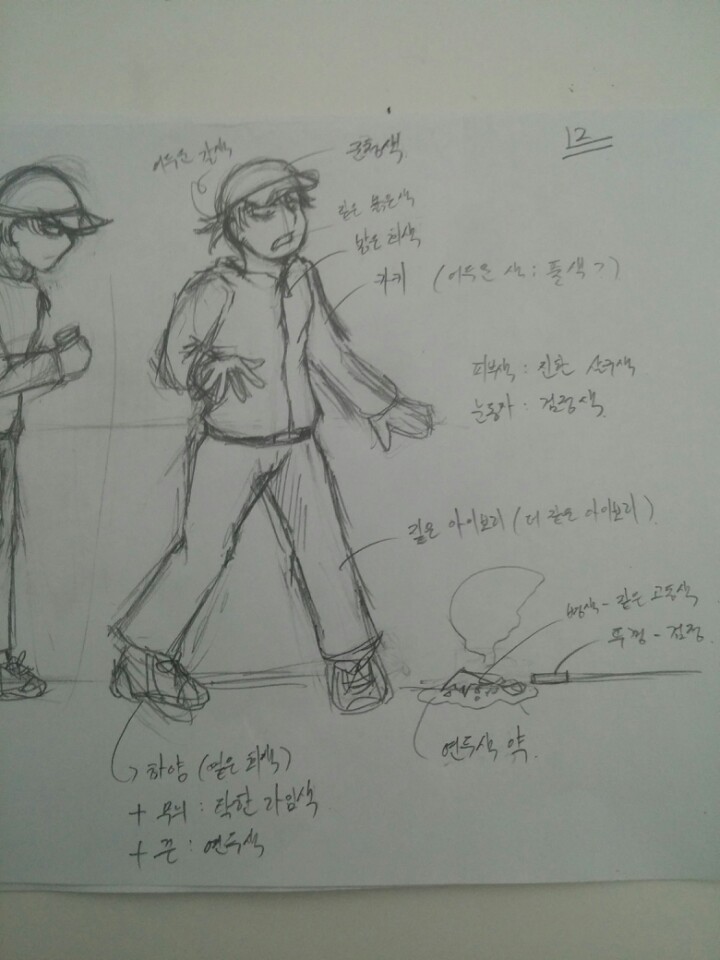 12
어두운 갈색
군청색
짙은 붉은색
밝은 회색
카키 (어두운 색 : 풀색 7)
피부색 : 진한 살구색
눈동자 : 검정색
짙은 아이보리 (더 짙은 아이보리)
병색 - 짙은 고동색
뚜껑 - 검정
연두색 약
하양 (옅은 회색)
+ 무늬 : 탁한 라임색
+ 끈 : 연두색